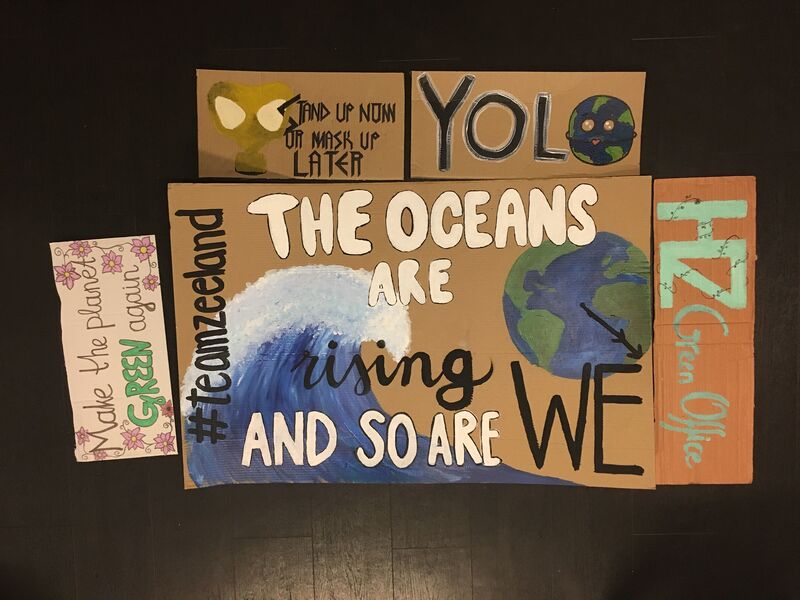 STAND UP NOW
OR MASK UP
LATER
YOLO
#teamzeeland
THE OCEANS
ARE
rising
AND SO ARE WE
Make the planet
GREEN again
HZ
Green Office